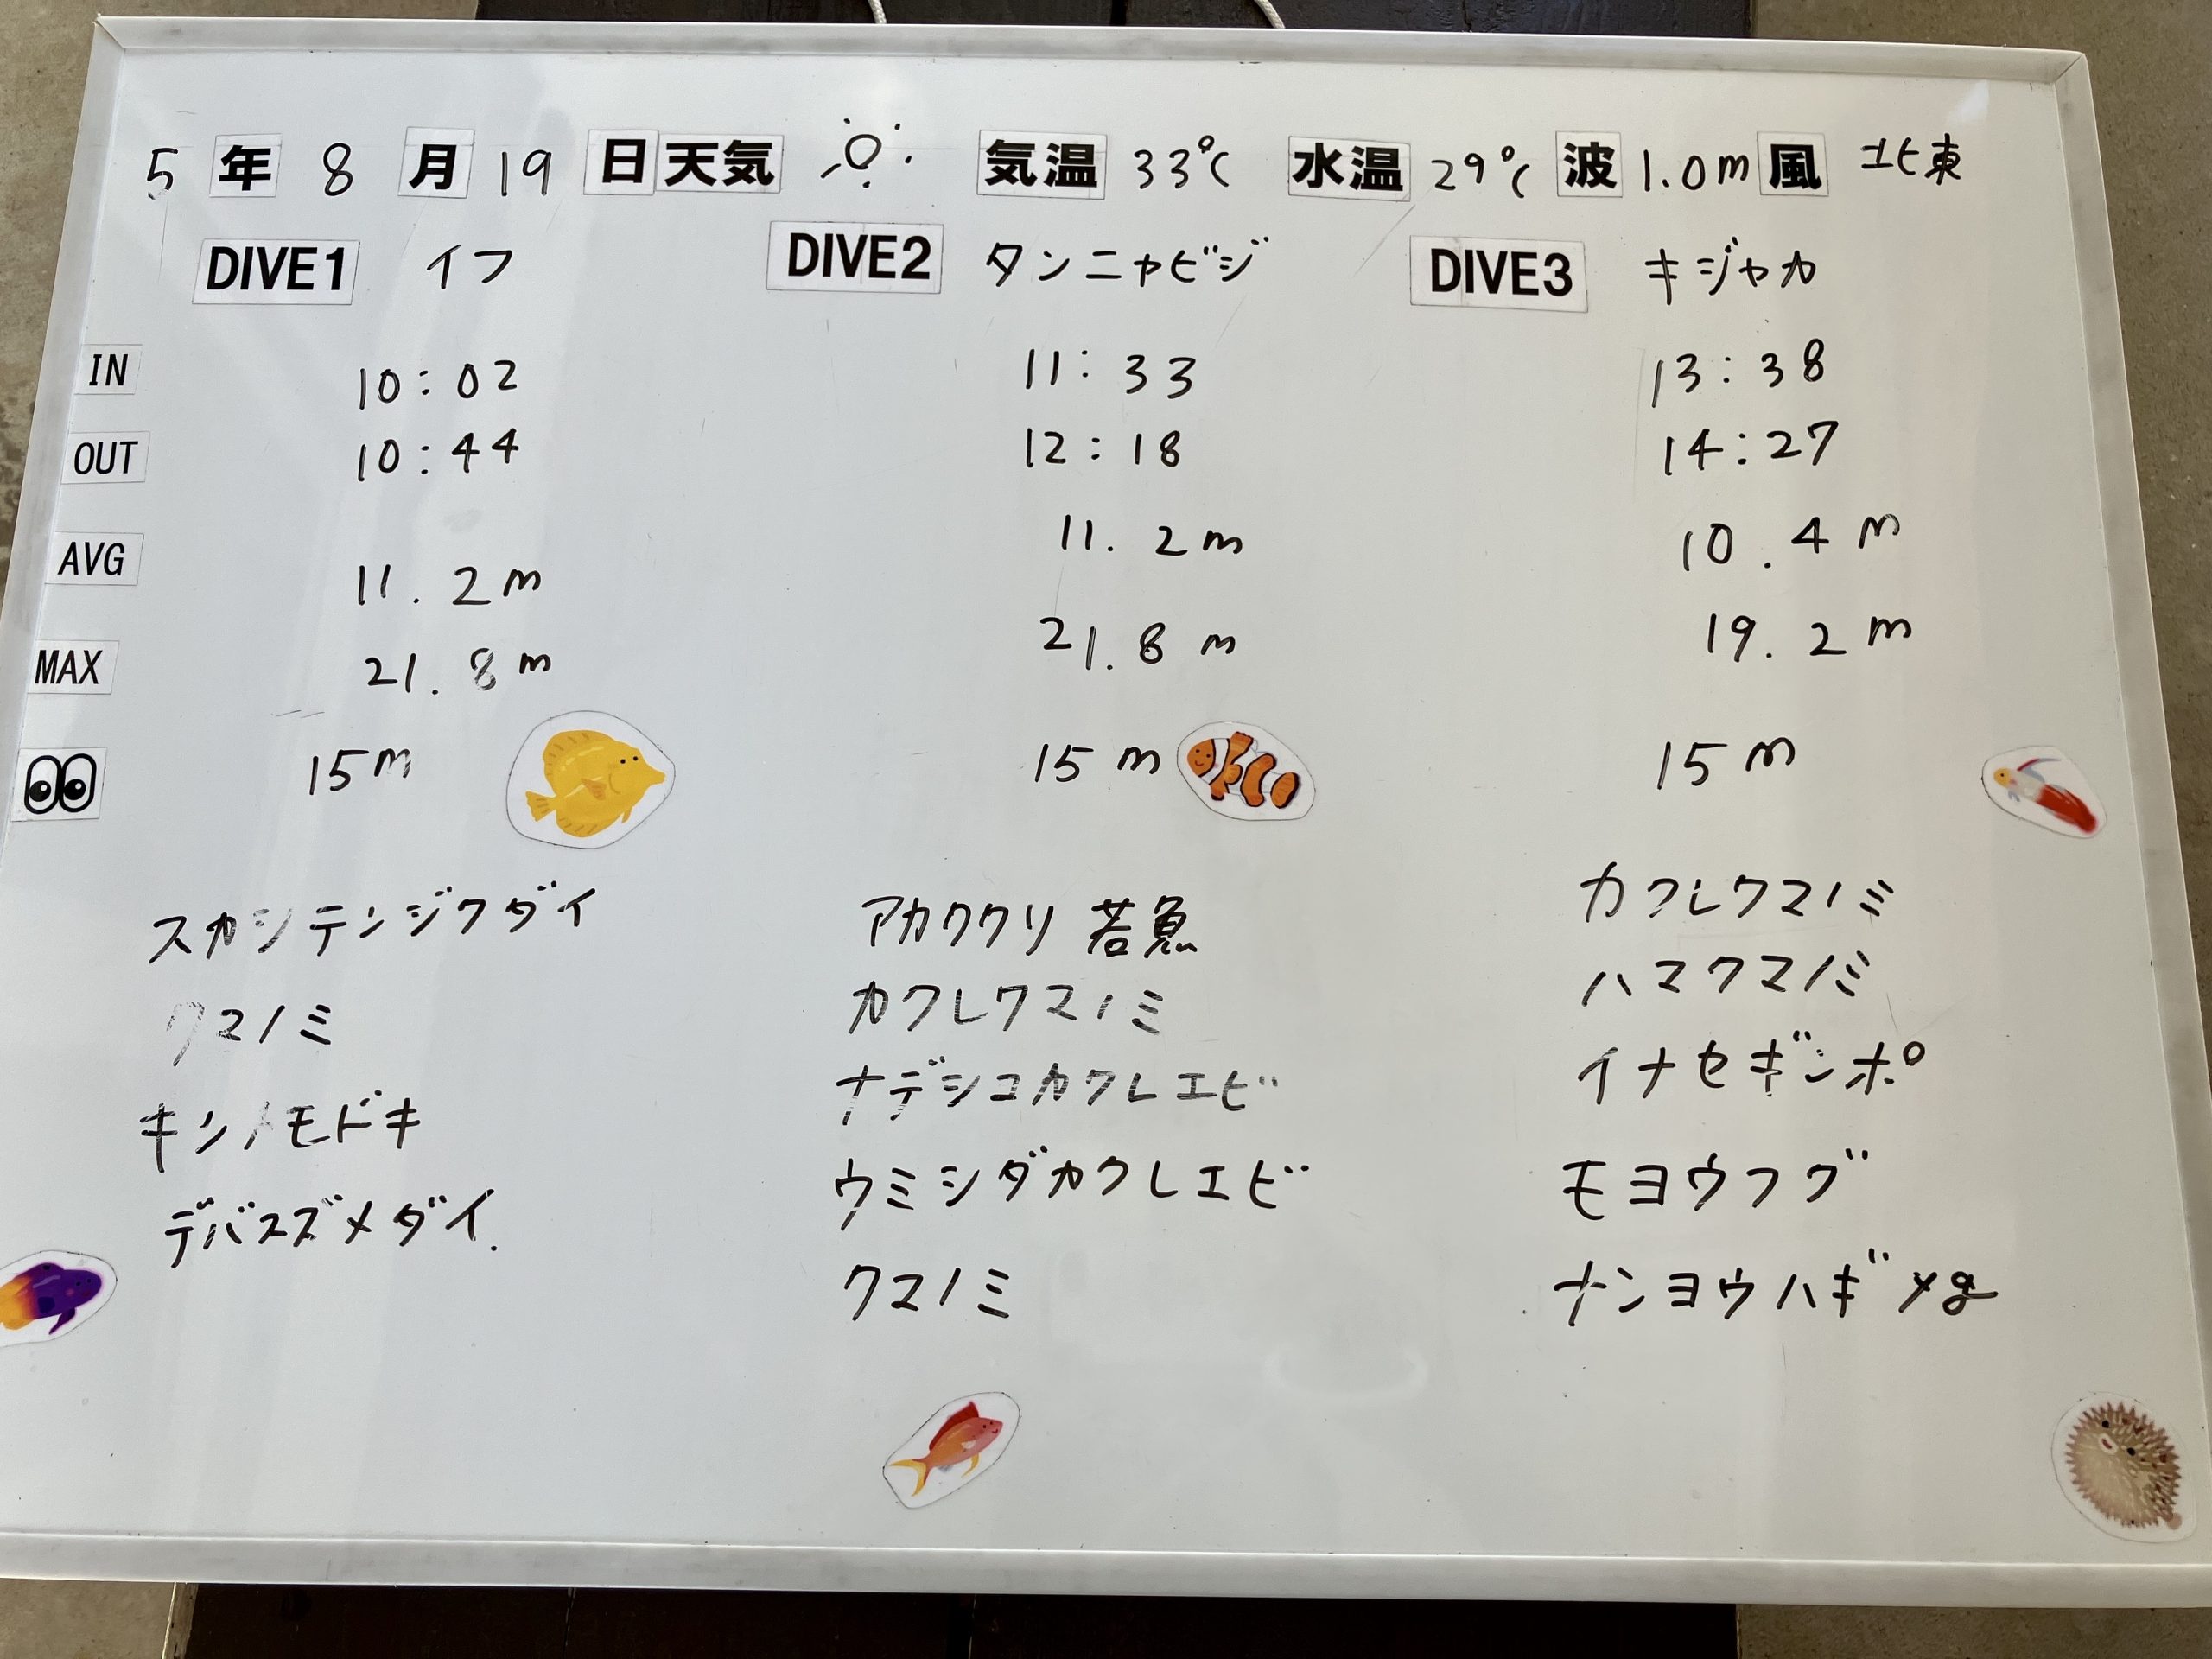 5年8月19日天気 気温33℃ 水温29℃ 波1.0m 風 北東
DIVE1 イフ DIVE2 タンニャビジ DIVE3 キジャカ
IN 10:02 11:33 13:38
OUT 10:44 12:18 14:27
AVG 11.2m 11.2m 10.4m
MAX 21.8m 21.8m 19.2m
15m 15m 15m
スカシテンジクダイ
クマノミ
キンメモドキ
デバスズメダイ.
アカククリ 若魚
カクレクマノミ
ナデシコカクレエビ
ウミシダカクレエビ
クマノミ
カクレクマノミ
ハマクマノミ
イナセギンポ
モヨウフグ
ナンヨウハギ yg